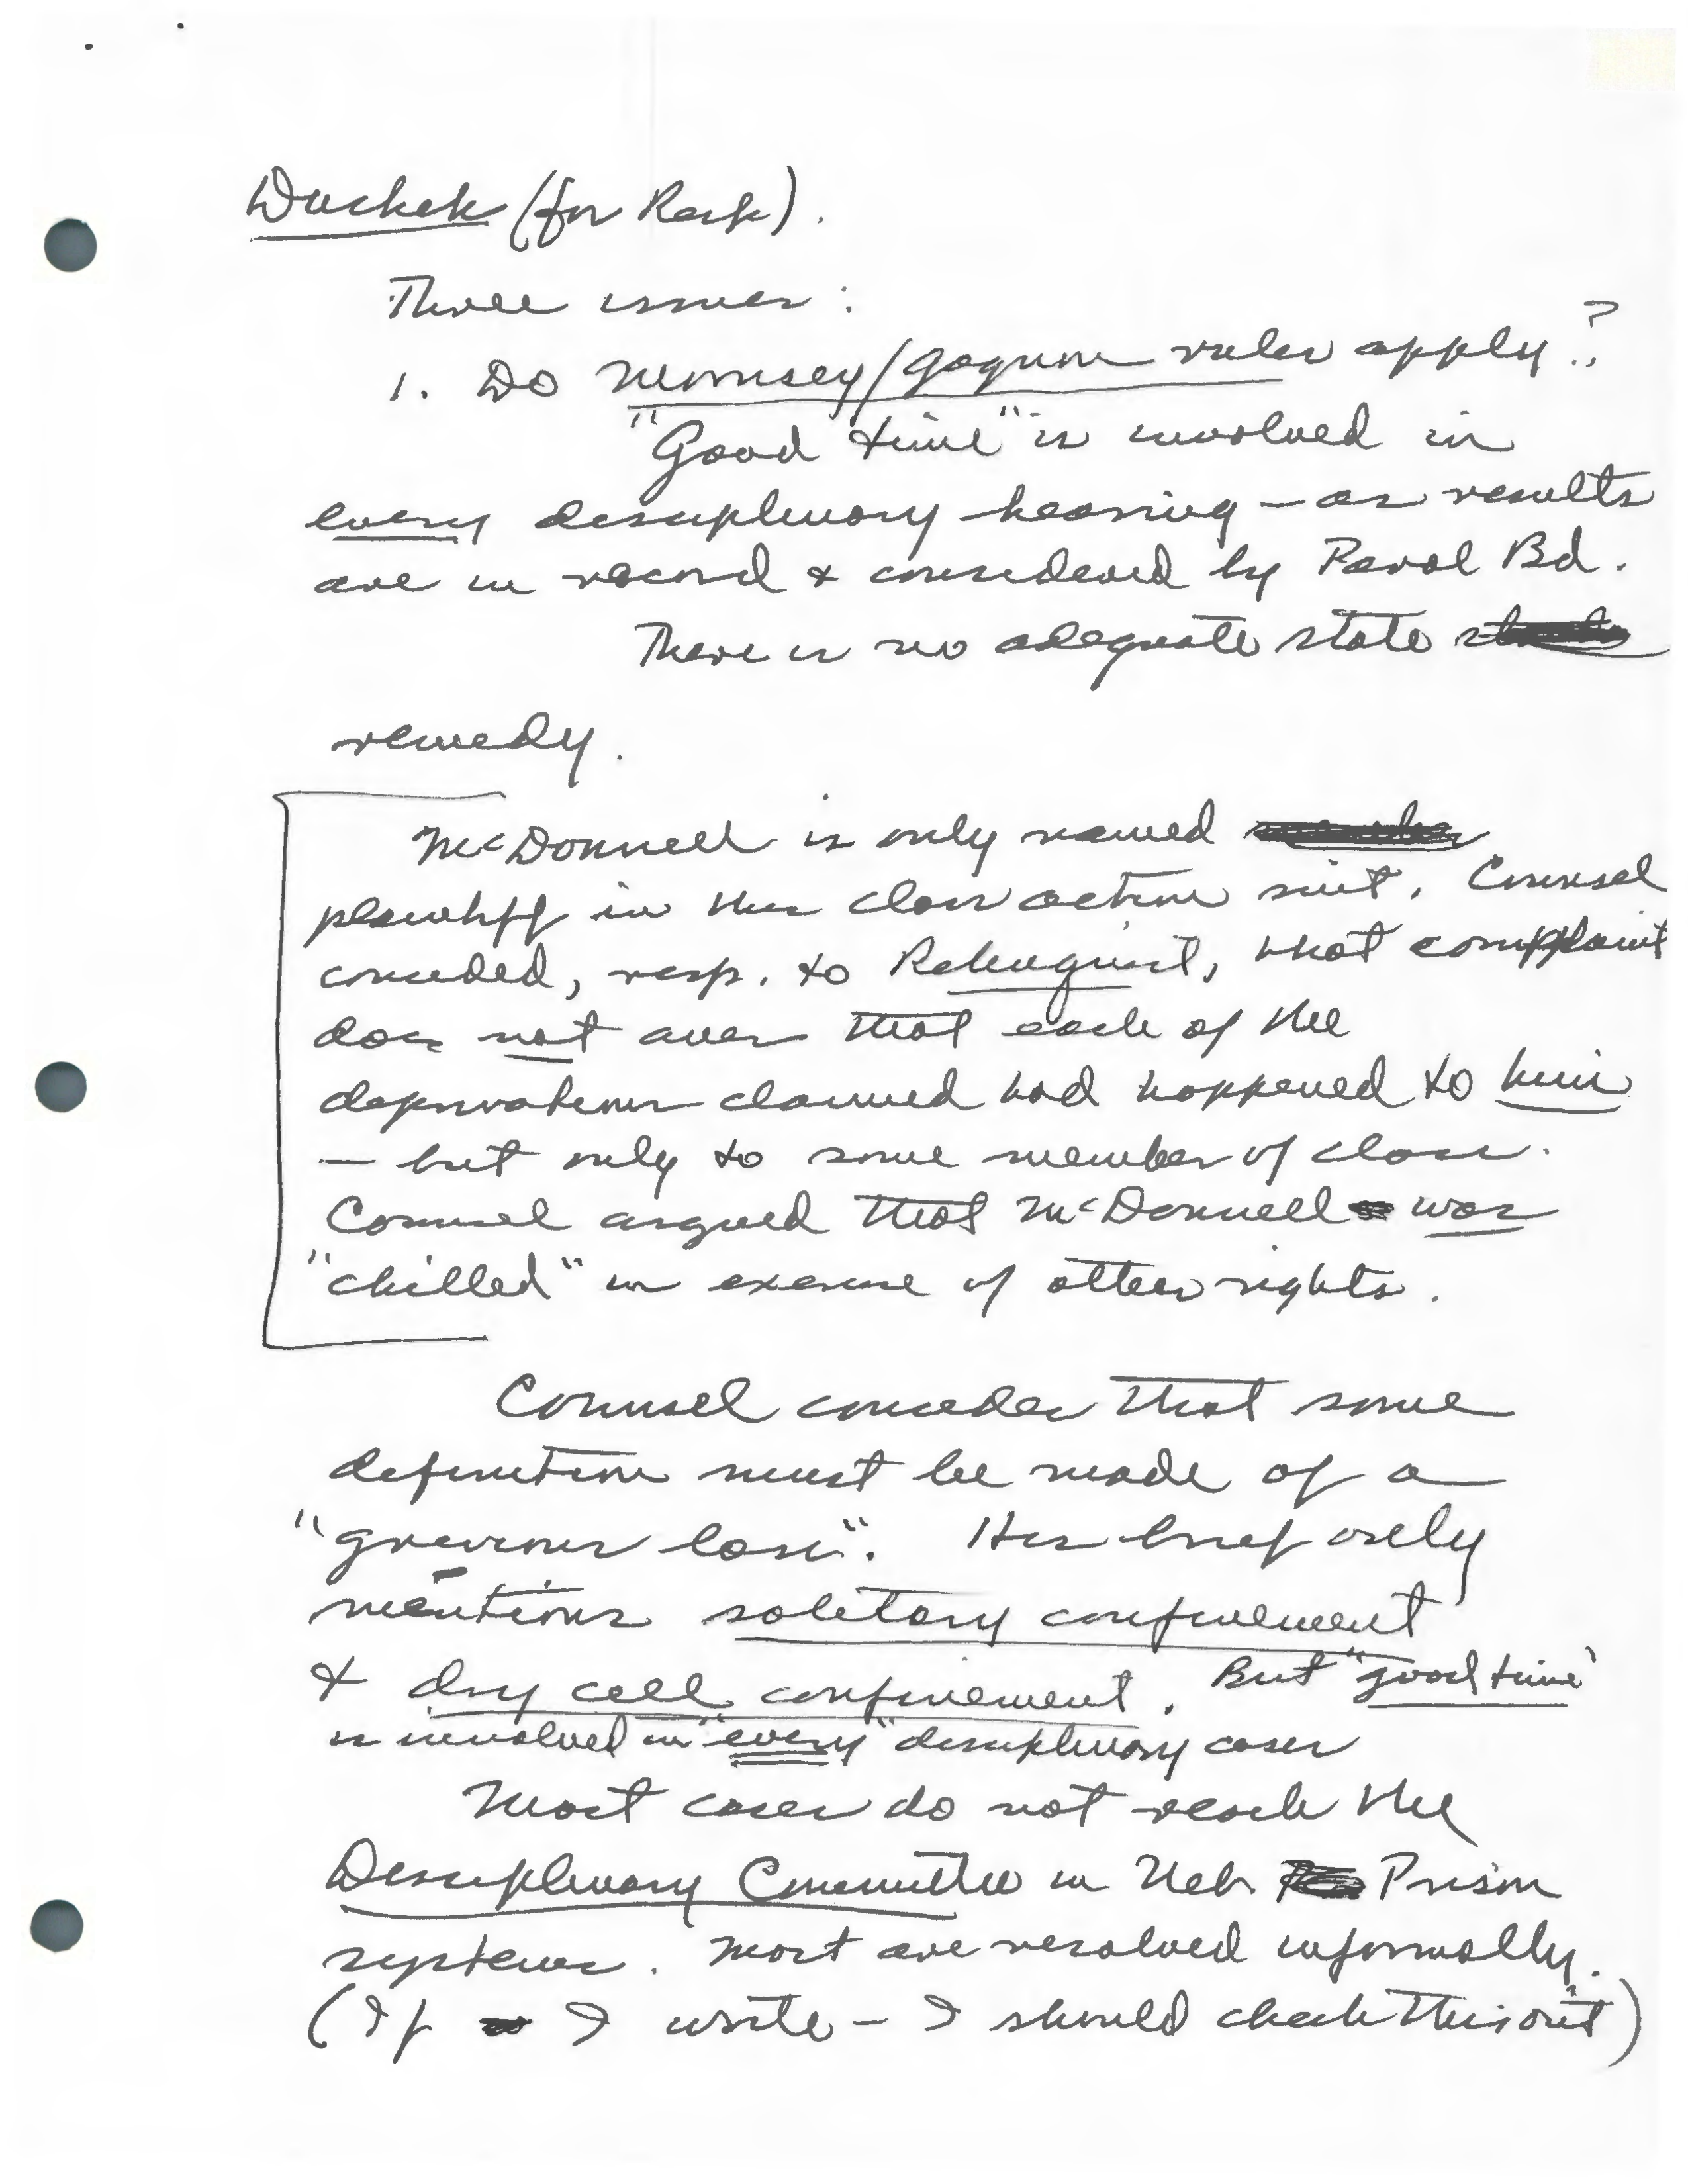 Duchek (for Resp).
Three issues:
1. Do Morrissey/Gagnon rules apply?
"Good time" is involved in
every disciplinary hearing - as results
are in record & considered by Parol Bd.
There is no adequate state
remedy.
McDonnell is only named
plaintiff in this class action suit. Counsel
conceded, resp. to Rehnquist, that complaint
does not aver that each of the
deprivations claimed had happened to him
- but only to some member of class.
Counsel argued that McDonnell was
"chilled" in exercise of other rights.
Counsel concedes that some
definition must be made of a
"grievous loss". His brief only
mentions solitary confinement
& dry cell confinement. But "good time"
is involved in "every" disciplinary cases
Most cases do not reach the
Disciplinary Committee in Neb. Prison
systems. Most are resolved informally.
(If I write - I should check this out)